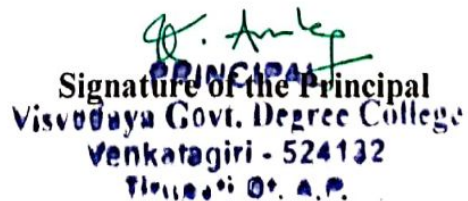 PRINCIPAL
Signature of the Principal
Visvodaya Govt. Degree College
Venkatagiri - 524132
Dt. A.P.